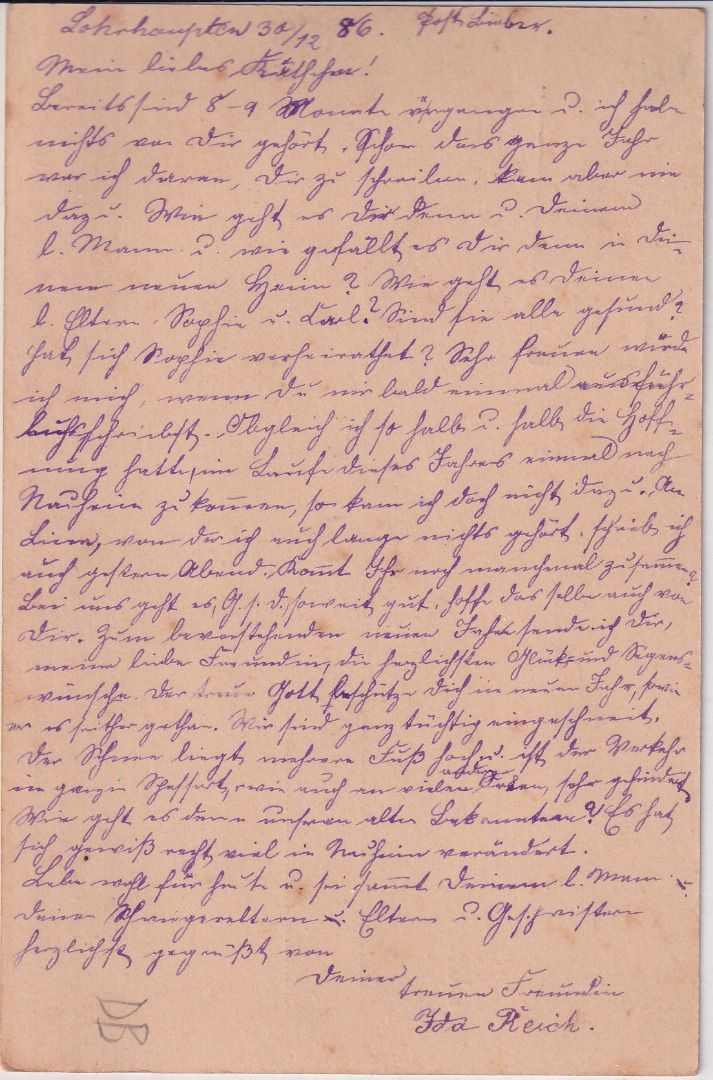 Lohrhaupten 30/12 86. Post Bieber.
Mein liebes Käthchen!
Bereits sind 8-9 Monate vergangen u. ich habe
nichts von Dir gehört. Schon das ganze Jahr
war ich daran, Dir zu schreiben, kam aber nie
dazu. Wie geht es Dir denn u. Deinem
l. Mann u. wie gefällt es Dir denn in Dei-
nem neuen Heim? Wie geht es Deinen
l. Eltern, Sophie u. Carl? Sind sie alle gesund?
Hat sich Sophie verheirathet? Sehr freuen würde
ich mich, wenn Du mir bald einmal ausführ-
lich schreibst. Obgleich ich so halb u. halb die Hoff-
nung hatte, im Laufe dieses Jahres einmal nach
Nauheim zu kommen, so kam ich doch nicht dazu. An
Lina, von der ich auch lange nichts gehört, schrieb ich
auch gestern Abend. Kommt Ihr noch manchmal zusammen?
Bei uns geht es, G. s. D. soweit gut, hoffe dasselbe auch von
Dir. Zum bevorstehenden neuen Jahre sende ich Dir,
meine liebe Freundin, die herzlichsten Glück- und Segens-
wünsche. Der treue Gott beschütze Dich im neuen Jahr, sowie
er es seither gethan. Wir sind ganz tüchtig eingeschneit.
Der Schnee liegt mehrere Fuß hoch u. ist der Verkehr
im ganzen Spessart, wie auch an vielen andern Orten, sehr gehindert.
Wie geht es denn unseren alten Bekannten? Es hat
sich gewiß recht viel in Nauheim verändert.
Lebe wohl für heute u. sei sammt Deinem l. Mann u.
Deinen Schwiegereltern u. Eltern u. Geschwistern
herzlichst gegrüßt von
Deiner
treuen Freundin
Ida Reich.
DB